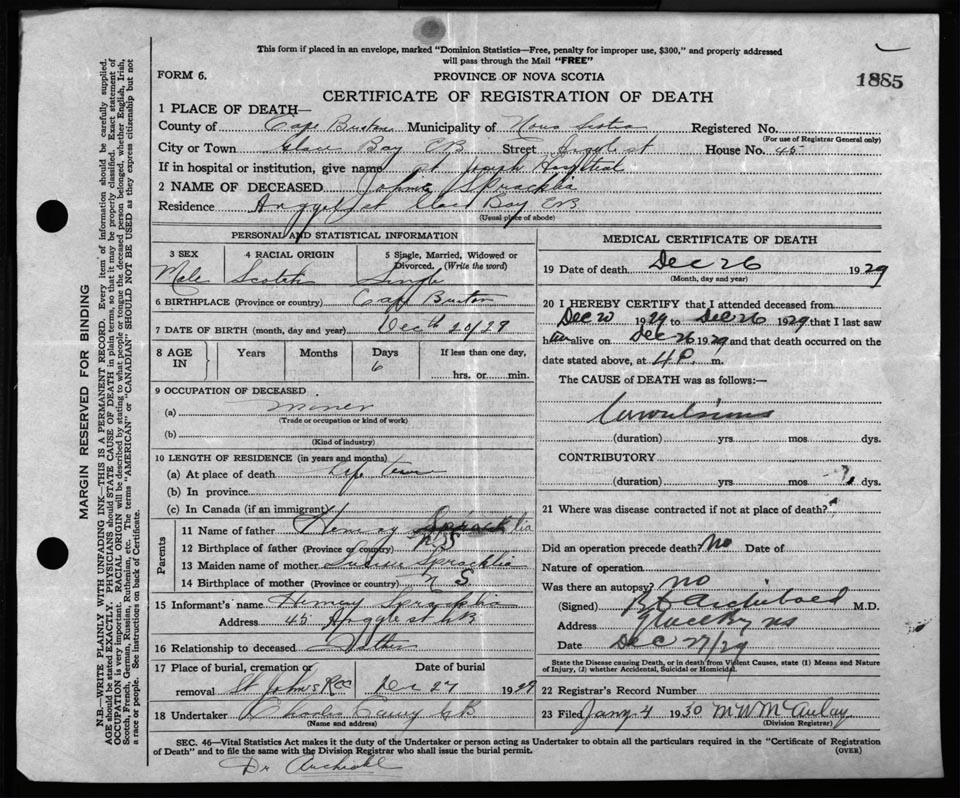 This form if placed in an envelope, marked "Dominion Statistics—Free, penalty for improper use, $300," and properly addressed
will pass through the Mail "FREE"
FORM 6.
PROVINCE OF NOVA SCOTIA
1885
CERTIFICATE OF REGISTRATION OF DEATH
1 PLACE OF DEATH—
County of Cape Breton Municipality of Nova Scotia Registered No.
(For use of Registrar General only)
City or Town Glace Bay CB Street Argyle st House No. 45
If in hospital or institution, give name at Joseph Hospital
2 NAME OF DECEASED John Spracklin
Residence Argyle st Glace Bay CB
(Usual place of abode)
PERSONAL AND STATISTICAL INFORMATION
3 SEX 4 RACIAL ORIGIN 5 Single, Married, Widowed or Divorced. (Write the word)
Male Scotch Single
6 BIRTHPLACE (Province or country) Cape Breton
7 DATE OF BIRTH (month, day and year) Dec th 20/29
8 AGE IN Years Months Days If less than one day,
6
hrs. or min.
9 OCCUPATION OF DECEASED
(a) miner
(Trade or occupation or kind of work)
(b)
(Kind of industry)
10 LENGTH OF RESIDENCE (in years and months)
(a) At place of death Life Time
(b) In province
(c) In Canada (if an immigrant)
Parents
11 Name of father Henry Spracklin
12 Birthplace of father (Province or country) N S
13 Maiden name of mother Spracklin
14 Birthplace of mother (Province or country) N S.
15 Informant's name Henry Spracklin
Address 45 Argyle st GB
16 Relationship to deceased Father
17 Place of burial, cremation or removal Date of burial
St John's Dec 27 1929
18 Undertaker Charles Curry GB
(Name and address)
MEDICAL CERTIFICATE OF DEATH
19 Date of death Dec 26 1929
(Month, day and year)
20 I HEREBY CERTIFY that I attended deceased from
Dec 20 1929 to Dec 26 1929 that I last saw
him alive on Dec 26 1929 and that death occurred on the
date stated above, at 4 P. m.
The CAUSE of DEATH was as follows:—
Convulsions
(duration) yrs. mos. dys.
CONTRIBUTORY
(duration) yrs. mos. dys.
21 Where was disease contracted if not at place of death?
Did an operation precede death? No Date of
Nature of operation
Was there an autopsy? no
(Signed) Archibald M.D.
Address Glace Bay NS
Date Dec 27/29
State the Disease causing Death, or in death from Violent Causes, state (1) Means and Nature
of Injury, (2) whether Accidental, Suicidal or Homicidal.
22 Registrar's Record Number
23 Filed Jany 4 1930 M W McAulay
(Division Registrar)
SEC. 46—Vital Statistics Act makes it the duty of the Undertaker or person acting as Undertaker to obtain all the particulars required in the "Certificate of Registration
of Death" and to file the same with the Division Registrar who shall issue the burial permit.
(OVER)
Dr Archibald
MARGIN RESERVED FOR BINDING
N.B.—WRITE PLAINLY WITH UNFADING INK—THIS IS A PERMANENT RECORD. Every item of information should be carefully supplied.
AGE should be stated EXACTLY. PHYSICIANS should STATE CAUSE OF DEATH in plain terms, so that it may be properly classified. Exact statement of
OCCUPATION is very important. RACIAL ORIGIN will be described by stating to what people or tongue the deceased person belonged, whether English, Irish,
Scotch, French, German, Russian, Ruthenian, etc. The terms "AMERICAN" or "CANADIAN" SHOULD NOT BE USED as they express citizenship but not
a race or people. See instructions on back of Certificate.